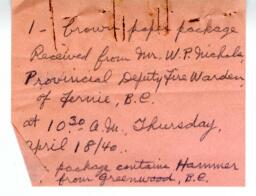 1 - brown paper package
Received from Mr. W.P. Nichols,
Provincial Deputy Fire Warden,
of Fernie, B.C.
at 10³⁰ A.M. Thursday,
April 18/40.
package contains Hammer
from Greenwood, B.C.